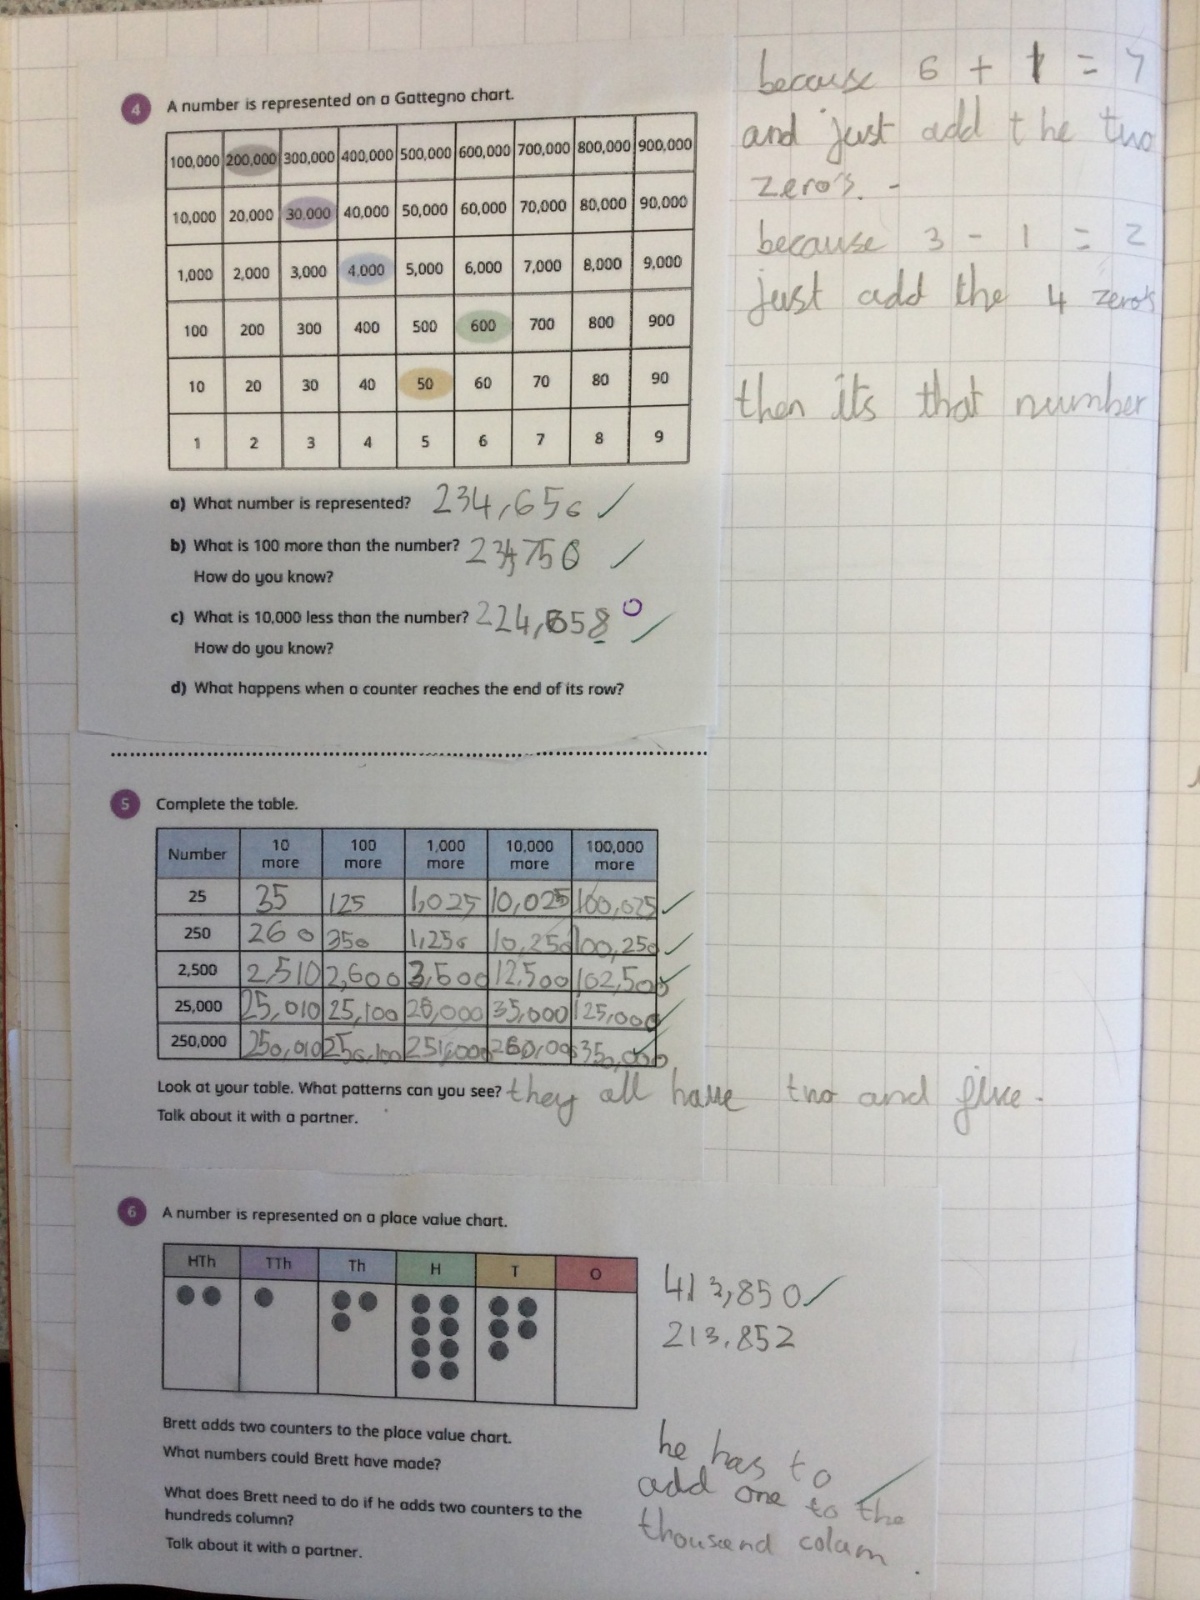 4 A number is represented on a Gattegno chart.
100,000 200,000 300,000 400,000 500,000 600,000 700,000 800,000 900,000
10,000 20,000 30,000 40,000 50,000 60,000 70,000 80,000 90,000
1,000 2,000 3,000 4,000 5,000 6,000 7,000 8,000 9,000
100 200 300 400 500 600 700 800 900
10 20 30 40 50 60 70 80 90
1 2 3 4 5 6 7 8 9
a) What number is represented? 234,650
b) What is 100 more than the number? 234,750
How do you know?
c) What is 10,000 less than the number? 224,658 0
How do you know?
d) What happens when a counter reaches the end of its row?
because 6 + 1 = 7
and just add the two
zero's. -
because 3 - 1 = 2
just add the 4 zero's
then its that number
5 Complete the table.
Number 10 more 100 more 1,000 more 10,000 more 100,000 more
25 35 125 1,025 10,025 100,025
250 260 350 1,250 10,250 100,250
2,500 2,510 2,600 3,500 12,500 102,500
25,000 25,010 25,100 26,000 35,000 125,000
250,000 250,010 250,100 251,000 260,000 350,000
Look at your table. What patterns can you see? they all have two and five.
Talk about it with a partner.
6 A number is represented on a place value chart.
HTh TTh Th H T O
413,850
213,852
Brett adds two counters to the place value chart.
What numbers could Brett have made?
What does Brett need to do if he adds two counters to the
hundreds column?
Talk about it with a partner.
he has to
add one to the
thousand colam